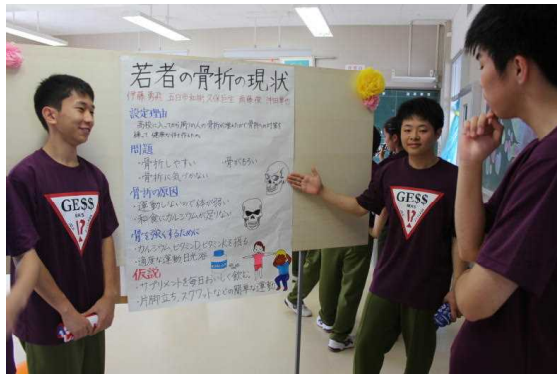 若者の骨折の現状
設定理由
問題
・骨折しやすい ・骨がもろい
・骨折に気づかない
骨折の原因
・運動しないので体が弱い
・和食にカルシウムが足りない
骨を強くするために
・カルシウム、ビタミンD、ビタミンKを摂る
・適度な運動 日光浴
仮説
・サプリメントを毎日おいしく飲む。
・片脚立ち、スクワットなどの簡単な運動
GE$$
GE$$
GE$$